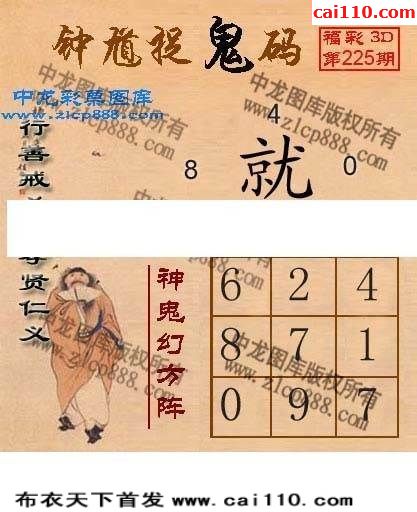 cai110.com
钟馗捉鬼码
福彩3D
第225期
中龙彩票图库
www.zlcp888.com
中龙图库版权所有
www.zlcp888.com
4
8 就 0
行善戒
尊贤仁义
神鬼幻方阵
6 2 4
8 7 1
0 9 7
中龙图库版权所有
www.zlcp888.com
布衣天下首发 www.cai110.com